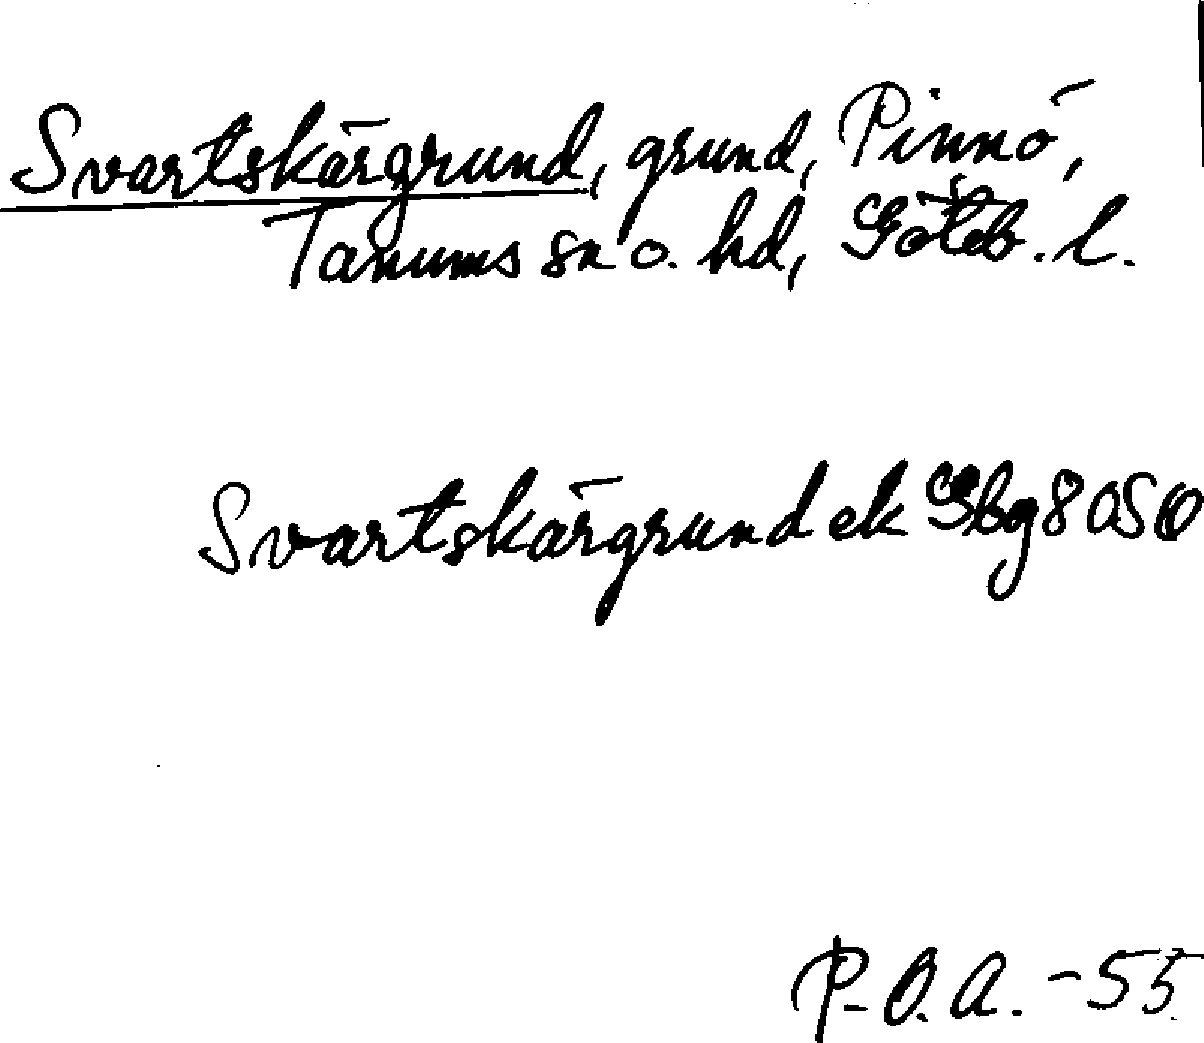 Svartskärgrund, grund, Pinnö,
Tanums sn o. hd, Göteb. l.
Svartskärgrund ek Gbg 8 OSO
P-O.A. -55